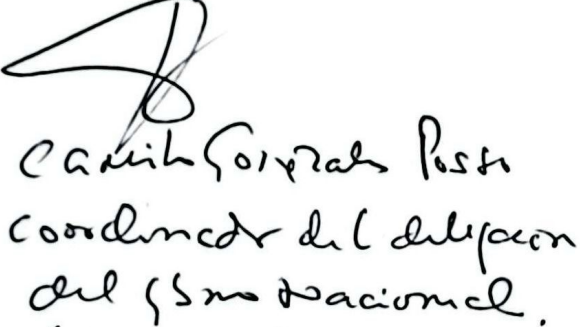 Camilo González Posso
Coordinador del delegación
del Gbno Nacional.